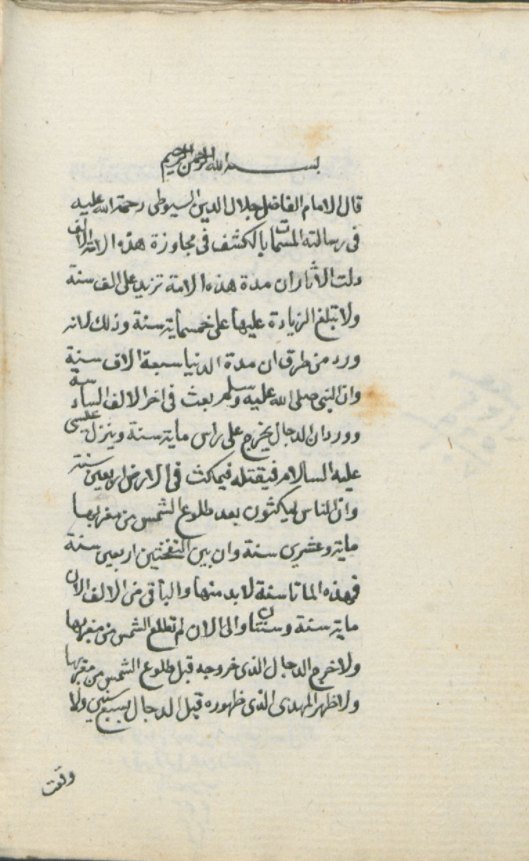 بسم الله الرحمن الرحيم
قال الامام الفاضل جلال الدين السيوطى رحمة الله عليه
فى رسالته المسمات بالكشف فى مجاوزة هذه الامة الالف
دلت الآثار ان مدة هذه الامة تزيد على الف سنة
ولا تبلغ الزيادة عليها على خمسماية سنة وذلك لانه
ورد من طرق ان مدة الدنيا سبعة الاف سنة
وان النبى صلى الله عليه وسلم بعث فى اخر الالف السادسة
وورد ان الدجال يخرج على راس ماية سنة وينزل عيسى
عليه السلام فيقتله فيمكث فى الارض اربعين سنة
وان الناس يمكثون بعد طلوع الشمس من مغربها
ماية وعشرين سنة وان بين النفختين اربعين سنة
فهذه الماتا سنة لابد منها والباقى من الالف الان
ماية سنة وسنتان والى الان لم تطلع الشمس من مغربها
ولا خرج الدجال الذى خروجه قبل طلوع الشمس من مغربها
ولا ظهر المهدى الذى ظهوره قبل الدجال بسبع سنين ولا
وقعت